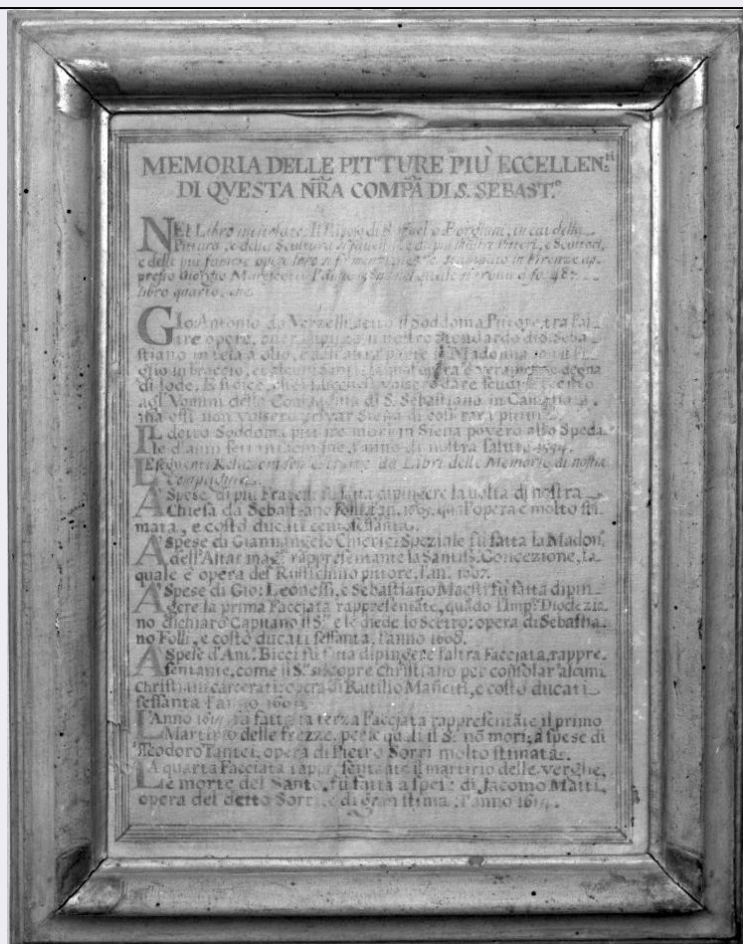 MEMORIA DELLE PITTURE PIÙ ECCELLEN.ti
DI QVESTA NRA COMPA DI S. SEBAST.o
NEL Libro intitolato Il Riposo di Raffaello Borghini, in cui della
Pittura, e della Scultura si favella, e de più illustri Pittori, e Scultori,
e delle più famose opere loro si fa menzione stampato in Firenze ap-
presso Giorgio Marescotti l'anno nel quale si trova à fo. 487.
libro quarto, che
GIo: Antonio da Verzelli detto il Soddoma Pittore, tra l'al-
tre opere, che dipinse, il nostro Stendardo di S. Seba
stiano in tela à olio, e dall'altra parte la Madonna con il Fi-
glio in braccio, et alcuni Santi, la qual opera è veramente degna
di lode. E si dice, che i volsero dare scudi trecento
agl' Vomini della Compagnia di S. Sebastiano in Camollia,
ma essi non volsero privar Siena di così rara pittura.
IL detto Soddoma pittore morì in Siena povero allo Speda
le d'anni settantacinque, l'anno di nostra salute 1554.
LE seguenti Relazioni son estratte da Libri delle Memorie di nostra
Compagnia.
A' Spese di più Fratelli fù fatta dipingere la volta di nostra
Chiesa da Sebastiano Folli, l'an. qual'opera è molto sti
mata, e costò ducati centosessanta.
A' Spese di Giannangelo Chierici Speziale fù fatta la Madon.
dell'Altar mag.e rappresentante la Santiss. Concezione, la
quale è opera del Rustichino pittore, l'an. 1607.
A' Spese di Gio: Leonelli, e Sebastiano Maesti fù fatta dipin-
gere la prima Facciata rappresentāte, quādo l'Imp.r Diodezia
no dichiarò Capitano il S.o e le diede lo Scetro; opera di Sebastia
no Folli, e costò ducati sessanta, l'anno 1608.
A' Spese d'Ant. Bicci fù fatta dipingere l'altra Facciata, rappre
sentante, come il S.o si scopre Christiano per consolar' alcuni
christiani carcerati; opera di Rutilio Manetti, e costò ducati
sessanta l'anno
L'Anno fù fatta la terza Facciata rappresentāte il primo
Martirio delle frezze, per le quali il S.o nō morì; à spese di
Teodoro Tantei, opera di Pietro Sorri molto stimata.
LA quarta Facciata rappresentante il martirio delle verghe,
e morte del Santo, fù fatta à spese di Jacomo Matti,
opera del detto Sorri, e di gran stima, l'anno 1614.